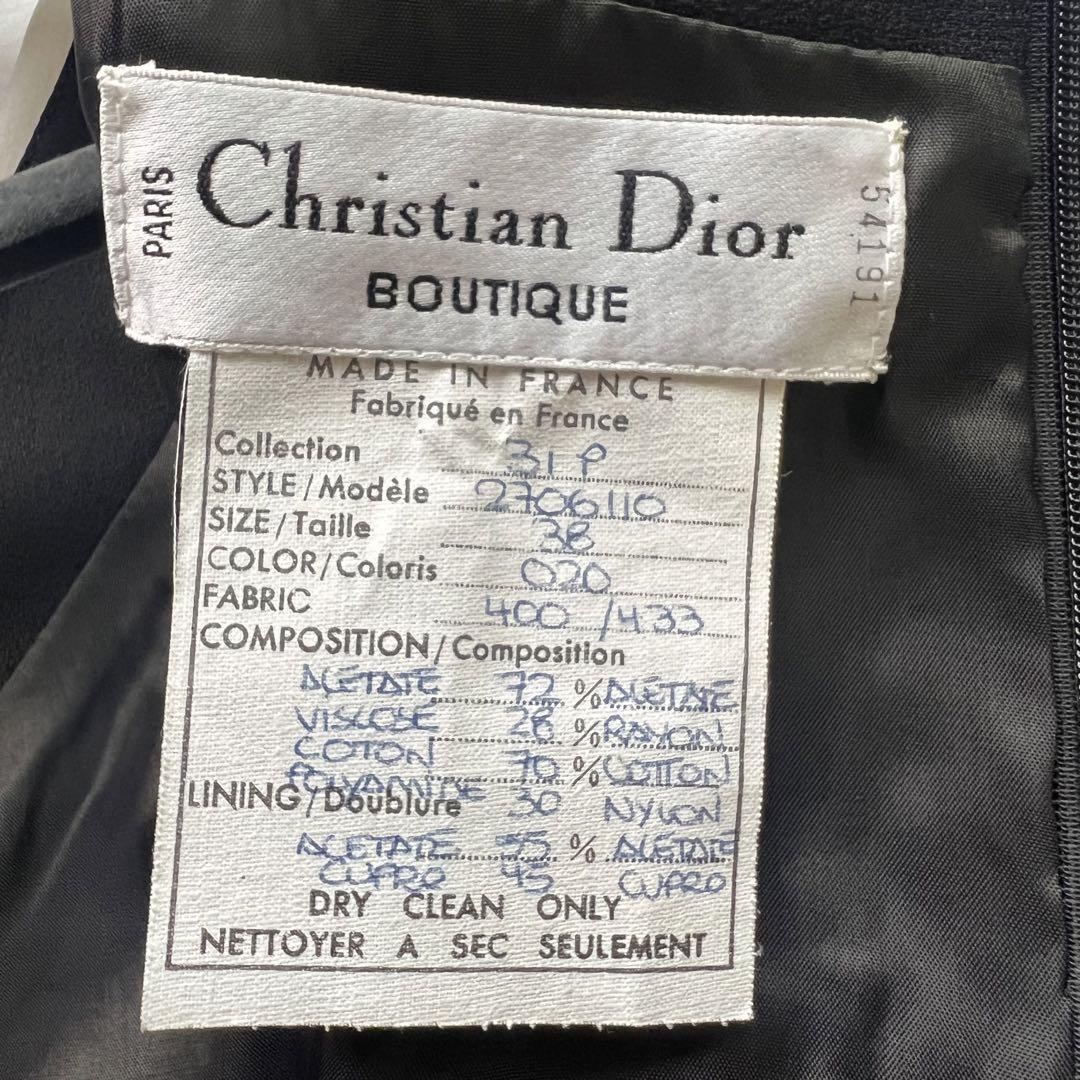 PARIS
Christian Dior
BOUTIQUE
54191
MADE IN FRANCE
Fabriqué en France
Collection 31 P
STYLE/Modèle 2706110
SIZE/Taille 38
COLOR/Coloris 020
FABRIC 400 /433
COMPOSITION/Composition
ACÉTATE 72 % ACÉTATE
VISCOSE 28 % RAYON
COTON 70 % COTTON
POLYAMIDE 30 NYLON
LINING/Doublure
ACETATE 55 % ACÉTATE
CUPRO 45 CUPRO
DRY CLEAN ONLY
NETTOYER A SEC SEULEMENT